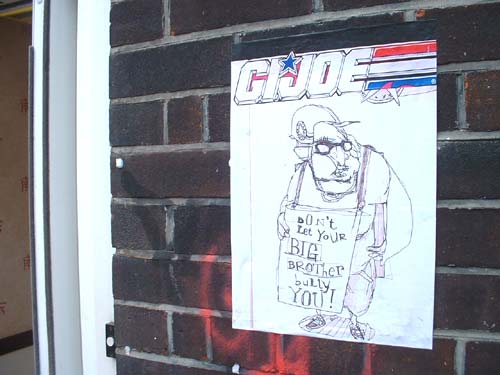 G.I.JOE
DON't
Let YoUR
BIG
BROTHer
bully
YOU!